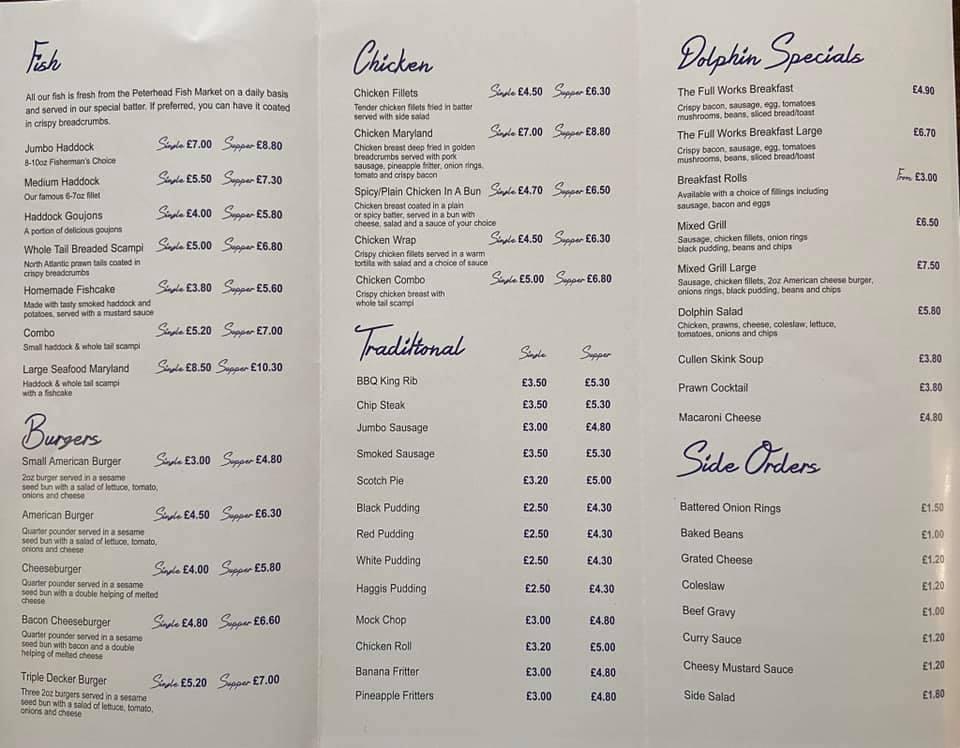 Fish
All our fish is fresh from the Peterhead Fish Market on a daily basis
and served in our special batter. If preferred, you can have it coated
in crispy breadcrumbs.
Jumbo Haddock Single £7.00 Supper £8.80
8-10oz Fisherman's Choice
Medium Haddock Single £5.50 Supper £7.30
Our famous 6-7oz fillet
Haddock Goujons Single £4.00 Supper £5.80
A portion of delicious goujons
Whole Tail Breaded Scampi Single £5.00 Supper £6.80
North Atlantic prawn tails coated in
crispy breadcrumbs
Homemade Fishcake Single £3.80 Supper £5.60
Made with tasty smoked haddock and
potatoes, served with a mustard sauce
Combo Single £5.20 Supper £7.00
Small haddock & whole tail scampi
Large Seafood Maryland Single £8.50 Supper £10.30
Haddock & whole tail scampi
with a fishcake
Burgers
Small American Burger Single £3.00 Supper £4.80
2oz burger served in a sesame
seed bun with a salad of lettuce, tomato,
onions and cheese
American Burger Single £4.50 Supper £6.30
Quarter pounder served in a sesame
seed bun with a salad of lettuce, tomato,
onions and cheese
Cheeseburger Single £4.00 Supper £5.80
Quarter pounder served in a sesame
seed bun with a double helping of melted
cheese
Bacon Cheeseburger Single £4.80 Supper £6.60
Quarter pounder served in a sesame
seed bun with bacon and a double
helping of melted cheese
Triple Decker Burger Single £5.20 Supper £7.00
Three 2oz burgers served in a sesame
seed bun with a salad of lettuce, tomato,
onions and cheese
Chicken
Chicken Fillets Single £4.50 Supper £6.30
Tender chicken fillets fried in batter
served with side salad
Chicken Maryland Single £7.00 Supper £8.80
Chicken breast deep fried in golden
breadcrumbs served with pork
sausage, pineapple fritter, onion rings,
tomato and crispy bacon
Spicy/Plain Chicken In A Bun Single £4.70 Supper £6.50
Chicken breast coated in a plain
or spicy batter, served in a bun with
cheese, salad and a sauce of your choice
Chicken Wrap Single £4.50 Supper £6.30
Crispy chicken fillets served in a warm
tortilla with salad and a choice of sauce
Chicken Combo Single £5.00 Supper £6.80
Crispy chicken breast with
whole tail scampi
Traditional Single Supper
BBQ King Rib £3.50 £5.30
Chip Steak £3.50 £5.30
Jumbo Sausage £3.00 £4.80
Smoked Sausage £3.50 £5.30
Scotch Pie £3.20 £5.00
Black Pudding £2.50 £4.30
Red Pudding £2.50 £4.30
White Pudding £2.50 £4.30
Haggis Pudding £2.50 £4.30
Mock Chop £3.00 £4.80
Chicken Roll £3.20 £5.00
Banana Fritter £3.00 £4.80
Pineapple Fritters £3.00 £4.80
Dolphin Specials
The Full Works Breakfast £4.90
Crispy bacon, sausage, egg, tomatoes
mushrooms, beans, sliced bread/toast
The Full Works Breakfast Large £6.70
Crispy bacon, sausage, egg, tomatoes
mushrooms, beans, sliced bread/toast
Breakfast Rolls From £3.00
Available with a choice of fillings including
sausage, bacon and eggs
Mixed Grill £6.50
Sausage, chicken fillets, onion rings
black pudding, beans and chips
Mixed Grill Large £7.50
Sausage, chicken fillets, 2oz American cheese burger,
onions rings, black pudding, beans and chips
Dolphin Salad £5.80
Chicken, prawns, cheese, coleslaw, lettuce,
tomatoes, onions and chips
Cullen Skink Soup £3.80
Prawn Cocktail £3.80
Macaroni Cheese £4.80
Side Orders
Battered Onion Rings £1.50
Baked Beans £1.00
Grated Cheese £1.20
Coleslaw £1.20
Beef Gravy £1.00
Curry Sauce £1.20
Cheesy Mustard Sauce £1.20
Side Salad £1.80